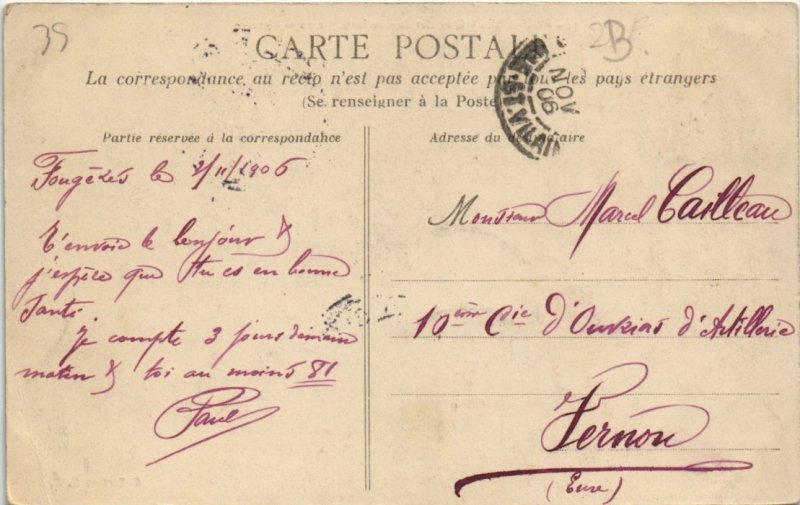 39
2B
CARTE POSTALE
La correspondance au recto n'est pas acceptée par tous les pays étrangers
(Se renseigner à la Poste)
NOV
06
Partie réservée à la correspondance
Fougères le 2/11/1906
T'envoie le bonjour &
j'espère que tu es en bonne
santé
je compte 3 jours demain
matin & toi au moins 81
Paul
Adresse du destinataire
Monsieur Marcel Cailleau
10ème Cie d'Ouvriers d'Artillerie
Vernon
(Eure)